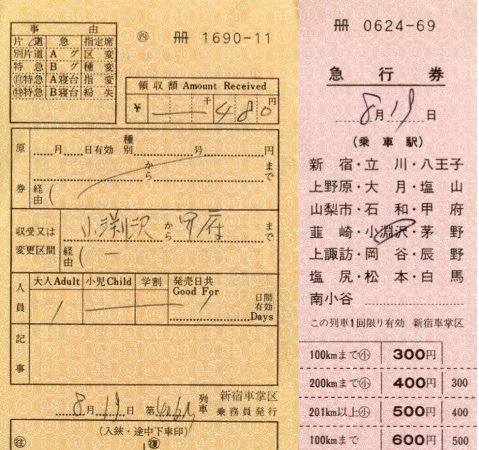 事 由
片道 急 指定席
別片道 A グ 区 変
特急 B グ 種 変
A寝台 指 変
B寝台 紛 失
冊 1690-11
領収額 Amount Received
¥ 千 480 円
原 券
月 日有効
種別 号 円
から まで
経由 (
収受又は変更区間
小渕沢 から 甲府 まで
経由 ( 一
人員
大人Adult 小児Child 学割 発売日共 Good For
1 1 日間有効 Days
記事
8月19日 第 列車
新宿車掌区 乗務員発行
(入鋏・途中下車印)
冊 0624-69
急行券
8月19日
(乗車駅)
新宿・立川・八王子
上野原・大月・塩山
山梨市・石和・甲府
韮崎・小淵沢・茅野
上諏訪・岡谷・辰野
塩尻・松本・白馬
南小谷
この列車1回限り有効 新宿車掌区
100kmまで小 300円
200kmまで小 400円 300
201km以上小 500円 400
100kmまで 600円 500